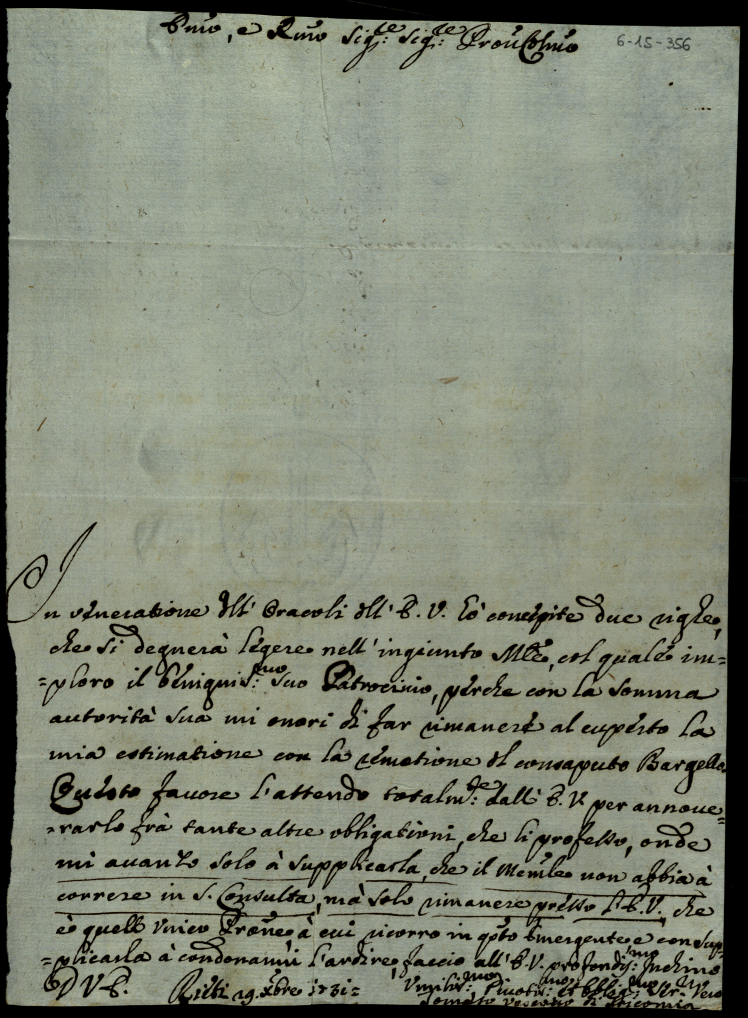 Emo, e Rmo Sig:re Sig:re Pron Colmo
6-15-356
In veneratione dell' Oracoli dell' E. V. hò concepite due righe,
che si degnerà legere nell' ingiunto Mle, col quale im=
=ploro il benignis:mo suo Patrocinio, perche con la somma
autorità sua mi onori di far rimanere al cuperto la
mia estimatione con la remotione del consaputo Bargello
Questo favore l'attendo totalm:te dall' E. V. per annove=
=rarlo frà tante altre obligationi, che li professo, onde
mi avanzo solo à supplicarla, che il Memle non abbia à
correre in S. Consulta, mà solo rimanere presso l'E. V., che
è quell' Unico Prone à cui ricorro in qsto Emergente, e con sup=
=plicarla à condonarmi l'ardire, faccio all' E. V. profondis:mo Inchino
D V. E. Rieti 19 Xbre 1731= Umilis:mo Divotis:mo et Obblig:mo Ser:re Vero
Vescovo di